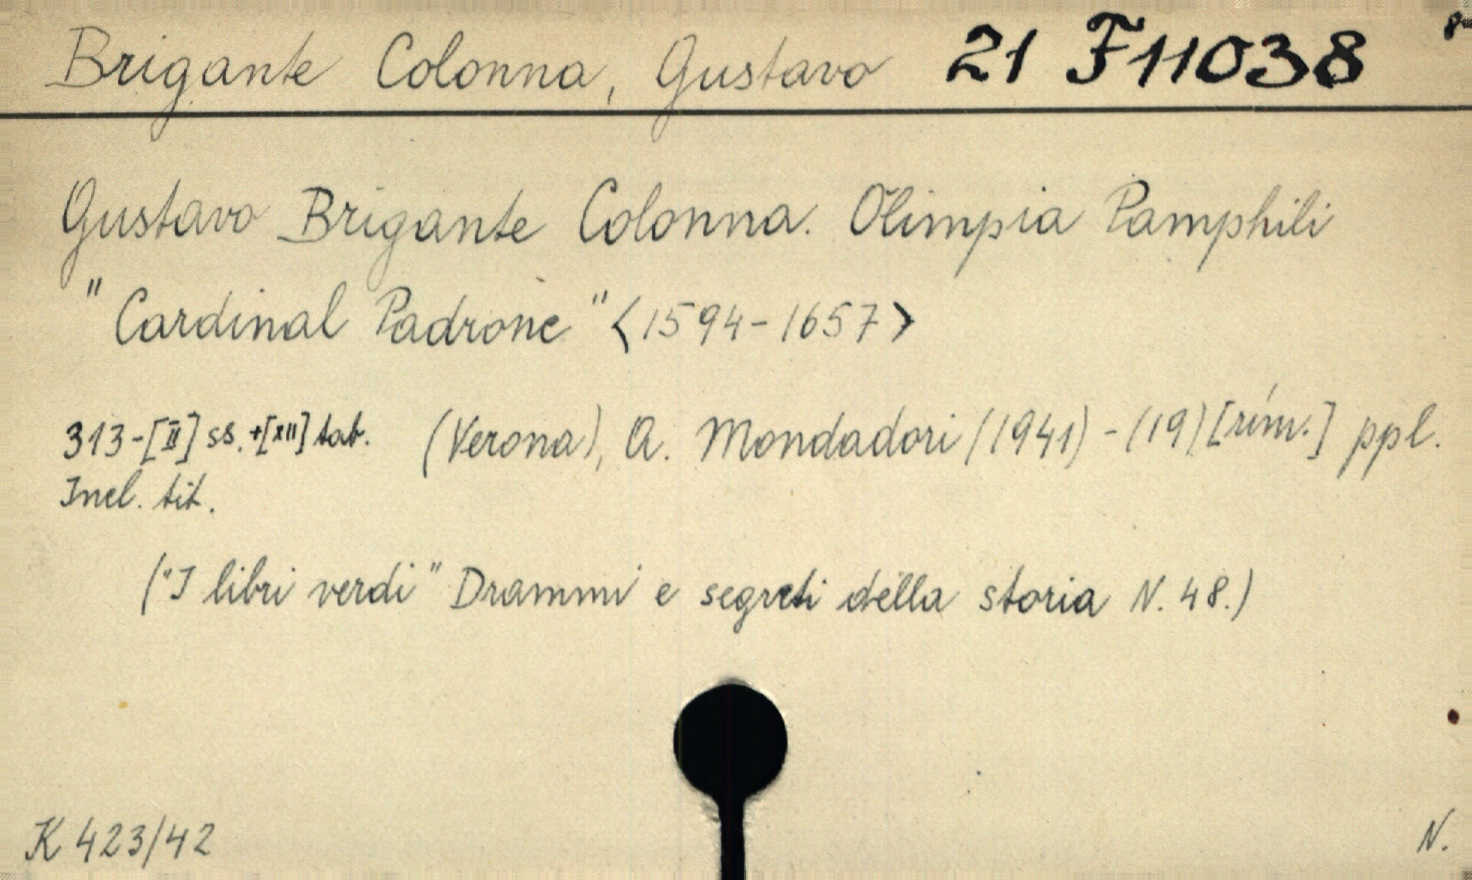 Brigante Colonna, Gustavo 21 F 11038 8°
Gustavo Brigante Colonna. Olimpia Pamphili
"Cardinal Padrone" <1594-1657>
313-[II] ss. +[XII] tab. (Verona), A. Mondadori (1941) - (19) [řím.] ppl.
Incl. tit.
("I libri verdi" Drammi e segreti della storia N. 48.)
K 423/42 N.